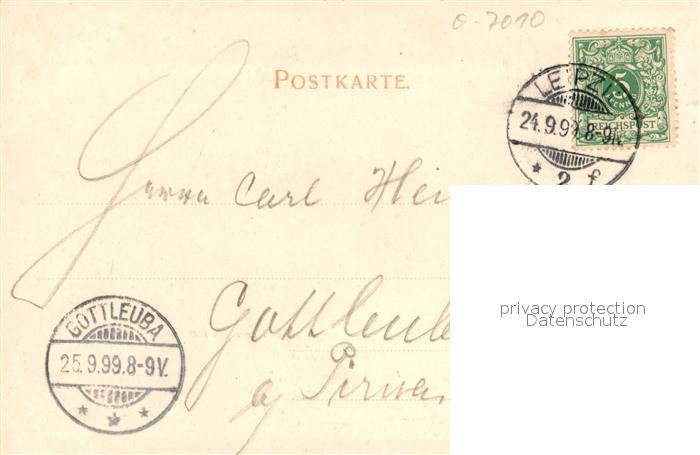 o-7010
POSTKARTE.
LEIPZI
24.9.99.8-9N.
* 2 f
5
REICHSPOST
Herrn Carl Hei
Gottleub
a/ Pirna
GOTTLEUBA
25.9.99.8-9V.
* * *
privacy protection
Datenschutz